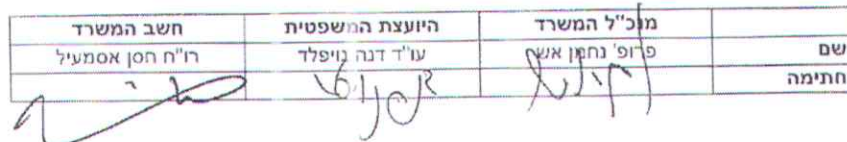 מנכ"ל המשרד היועצת המשפטית חשב המשרד
שם פרופ' נחמן אש עו"ד דנה נויפלד רו"ח חסן אסמעיל
חתימה